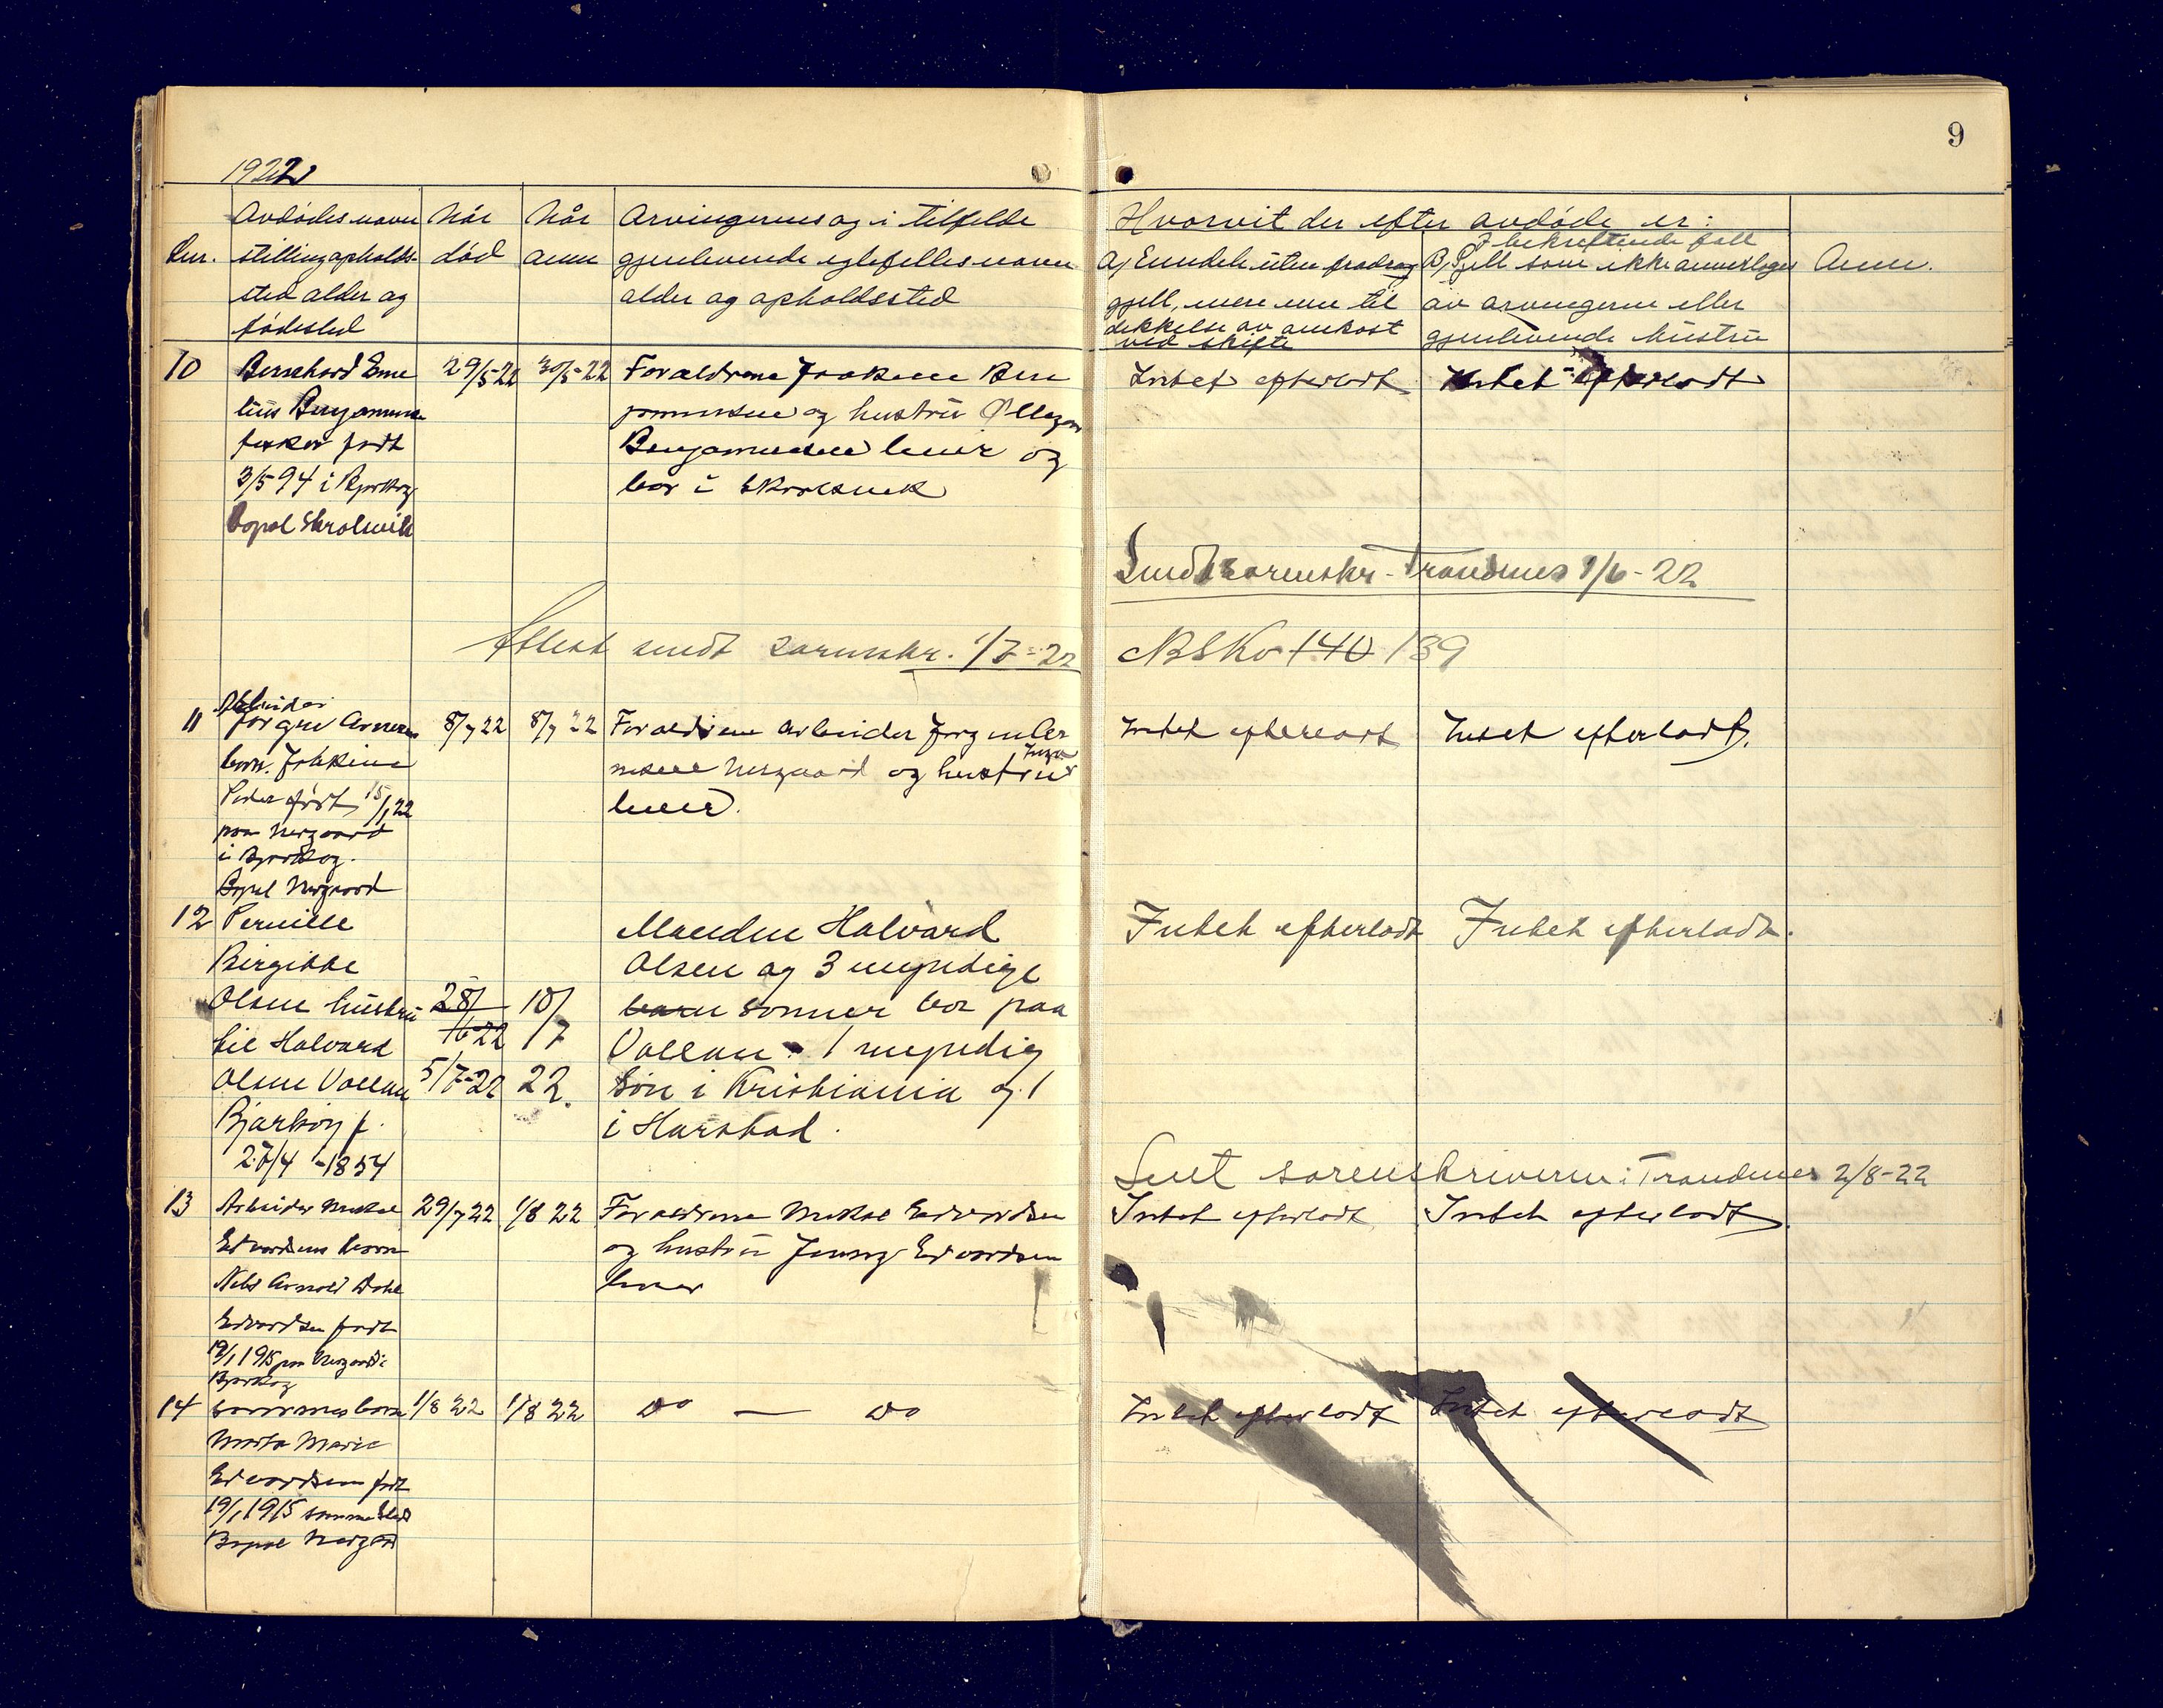 9
1922
Avdødes navn
stilling opholds-
sted alder og
fødested
Når
død
Når
anm
Arvingernes og i tilfelde
gjenlevende egtefelles navn
alder og opholdssted
Hvorvit der efter avdøde er:
A) Eiendele uten fradrag
gjell, mere enn til
dekkelse av omkost
ved skifte
I bekreftende fall
B) Gjell som ikke
av arvingerne eller
gjenlevende hustru
Anm.
10
Bernhard
fisker født
3/5 94 i Bjarkøy
Bopel
29/5-22
30/5-22
Forældrene Joakim Ben
jaminsen og hustru
Benjaminsen lever og
bor i
Intet efterladt
Intet efterladt
Sendt sorenskr. Trondenes 1/6-22
Attest sendt sorenskr. 1/7-22
140 139
11
Arbeider
Jørgen Arnesen
barn
Peder født 15/1 22
paa Nergaard
i Bjarkøy.
Bopel Nergaard
8/7 22
8/7 22
Forældrene arbeider Jørgen Ar
nesen Nergaard og hustru
lever.
Intet efterladt
Intet efterladt.
12
Pernille
Birgitte
Olsen hustru
til Halvard
Olsen Vollan
Bjarkøy f.
27/4 -1854
28/
/6-22
5/7-22
10/
/7
22.
Manden Halvard
Olsen og 3 myndige
barn sønner bor paa
Vollan. 1 myndig
søn i Kristiania og 1
i Harstad.
Intet efterladt
Intet efterladt.
Sent sorenskriveren i Trondenes 2/8-22
13
Arbeider Mikal
Edvardsens barn
Nils Arnold Dahl
Edvardsen født
19/1 1915 paa Nergaard i
Bjarkøy
29/7 22
1/8 22
Forældrene Mikal Edvardsen
og hustru Jenny Edvardsen
lever
Intet efterladt
Intet efterladt.
14
sammes barn
Marta Marie
Edvardsen født
19/1 1915 samme sted
Bopel Nergård
1/8 22
1/8 22
Do — Do
Intet efterladt
Intet efterladt